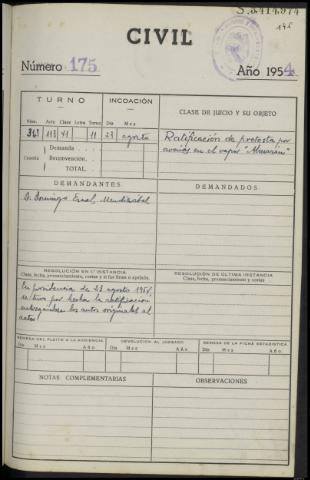 S.J. 414.974
CIVIL
Número 175 Año 1954
TURNO INCOACIÓN CLASE DE JUICIO Y SU OBJETO
Núm. Acto Clase Letra Turno Día Mes
343 113 41 11 23 agosto Ratificación de protesta por
Demanda averías en el vapor
Cuantía Reconvención
DEMANDANTES DEMANDADOS
D. Domingo Mendizábal
RESOLUCIÓN EN 1.ª INSTANCIA RESOLUCIÓN DE ÚLTIMA INSTANCIA
Clase, fecha, pronunciamiento, costas y si fue firme o apelada. Clase, fecha, pronunciamiento y costas
En providencia de 23 agosto 1954,
se tuvo por hecha la ratificación
entregándose los autos originales al
actor
REMESA DEL PLEITO A LA AUDIENCIA DEVOLUCIÓN AL JUZGADO REMESA DE LA FICHA ESTADÍSTICA
Día Mes Año Día Mes Año Día Mes Año
NOTAS COMPLEMENTARIAS OBSERVACIONES